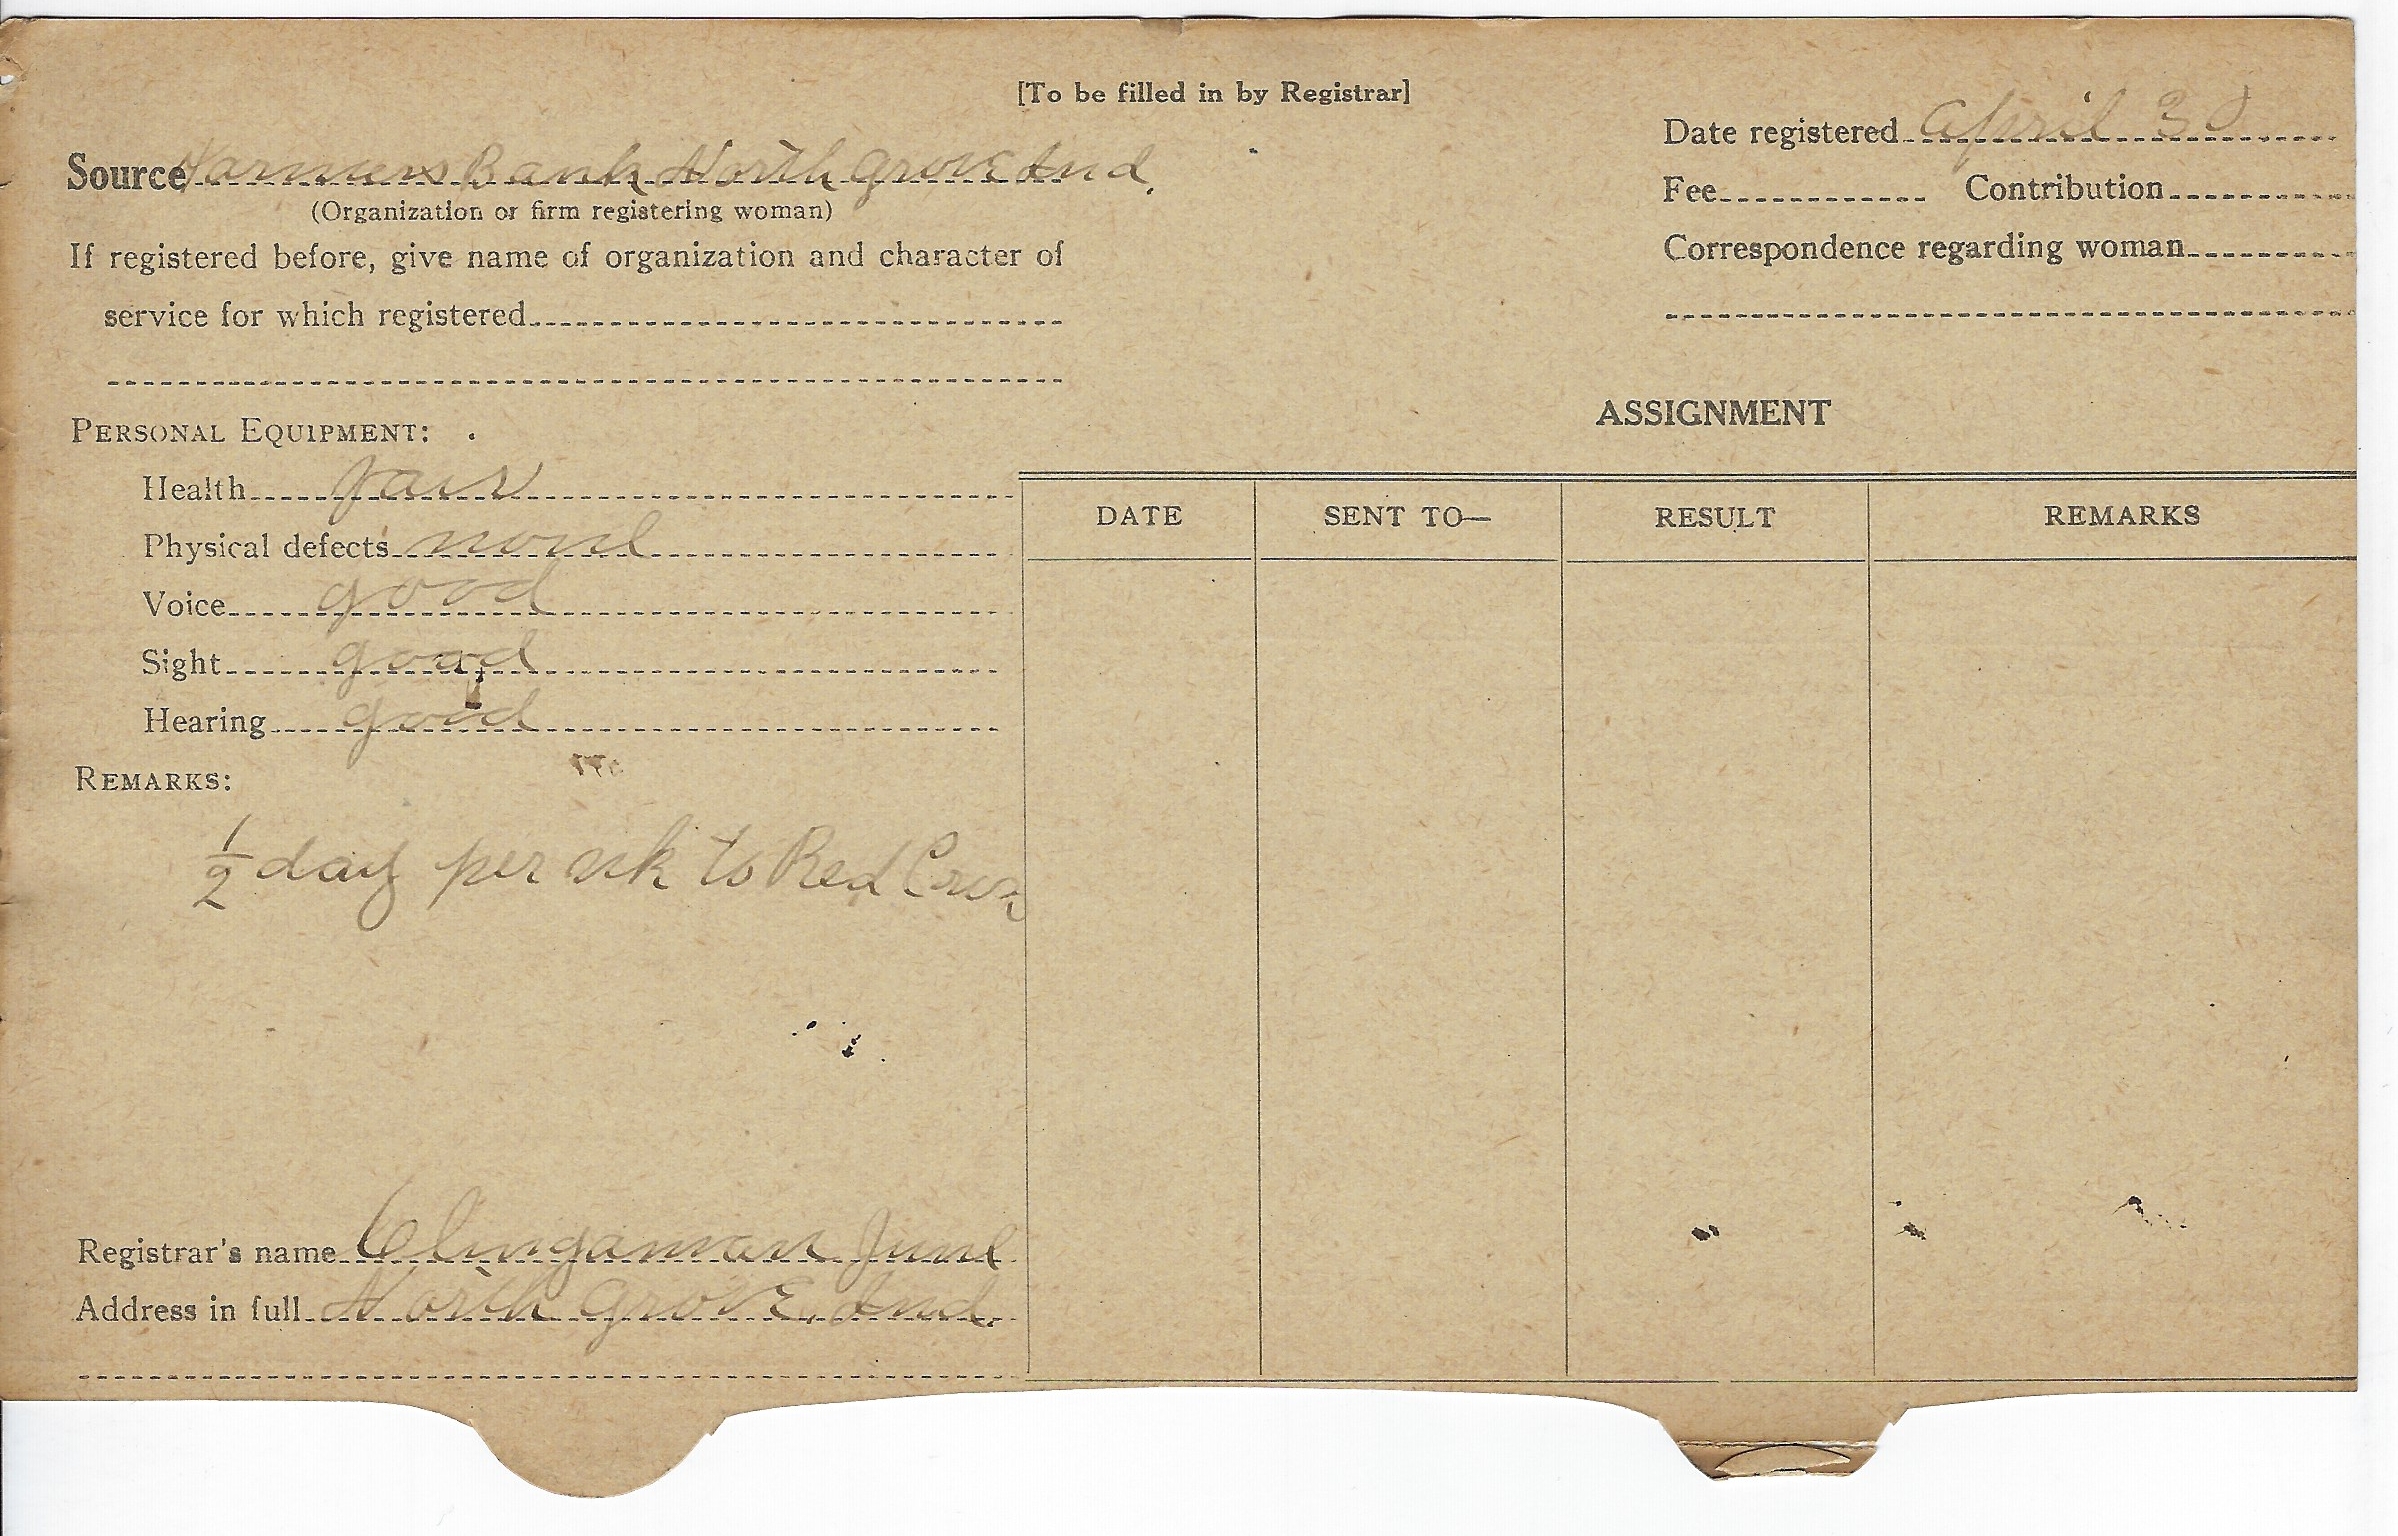 [To be filled in by Registrar]
Date registered April 30
Source Farmers Bank North Grove Ind.
(Organization or firm registering woman)
Fee Contribution
If registered before, give name of organization and character of
Correspondence regarding woman
service for which registered
PERSONAL EQUIPMENT:
ASSIGNMENT
Health fair
DATE SENT TO— RESULT REMARKS
Physical defects none
Voice good
Sight good
Hearing good
REMARKS:
1/2 day per wk to Red Cross
Registrar's name Clingaman June
Address in full North Grove, Ind.